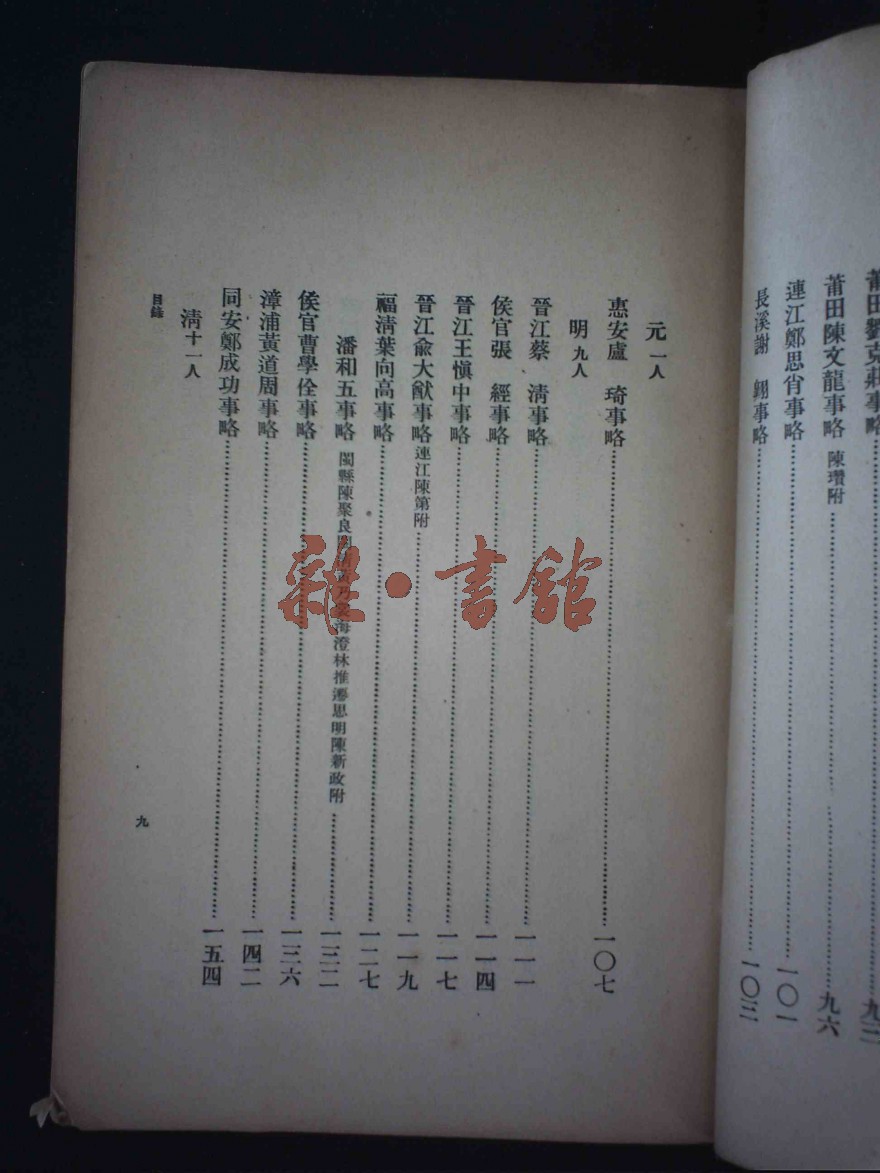 莆田劉克莊事略
莆田陳文龍事略 陳瓚附 九六
連江鄭思肖事略 一〇一
長溪謝 翱事略 一〇三
元 一人
惠安盧 琦事略 一〇七
明 九人
晉江蔡 清事略 一一一
侯官張 經事略 一一四
晉江王愼中事略 一一七
晉江俞大猷事略 連江陳第附 一一九
福清葉向高事略 一二七
潘和五事略 閩縣陳聚良閩清黃乃裳海澄林推遷思明陳新政附 一三二
侯官曹學佺事略 一三六
漳浦黃道周事略 一四二
同安鄭成功事略 一五四
清 十一人
目錄
九
雜·書館